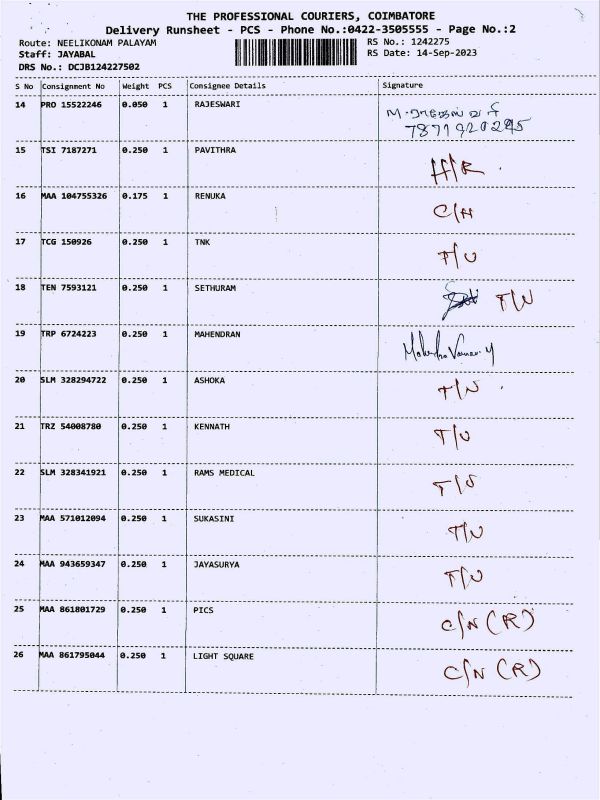 THE PROFESSIONAL COURIERS, COIMBATORE
Delivery Runsheet - PCS - Phone No.:0422-3505555 - Page No.:2
Route: NEELIKONAM PALAYAM RS No.: 1242275
Staff: JAYABAL RS Date: 14-Sep-2023
DRS No.: DCJB124227502
S No Consignment No Weight PCS Consignee Details Signature
14 PRO 15522246 0.050 1 RAJESWARI
7871920245
15 TSI 7187271 0.250 1 PAVITHRA
16 MAA 104755326 0.175 1 RENUKA C/N
17 TCG 150926 0.250 1 TNK T/U
18 TEN 7593121 0.250 1 SETHURAM T/U
19 TRP 6724223 0.250 1 MAHENDRAN
20 SLM 328294722 0.250 1 ASHOKA T/U
21 TRZ 54008780 0.250 1 KENNATH T/U
22 SLM 328341921 0.250 1 RAMS MEDICAL T/U
23 MAA 571012094 0.250 1 SUKASINI T/U
24 MAA 943659347 0.250 1 JAYASURYA T/U
25 MAA 861801729 0.250 1 PICS C/N (R)
26 MAA 861795044 0.250 1 LIGHT SQUARE C/N (R)